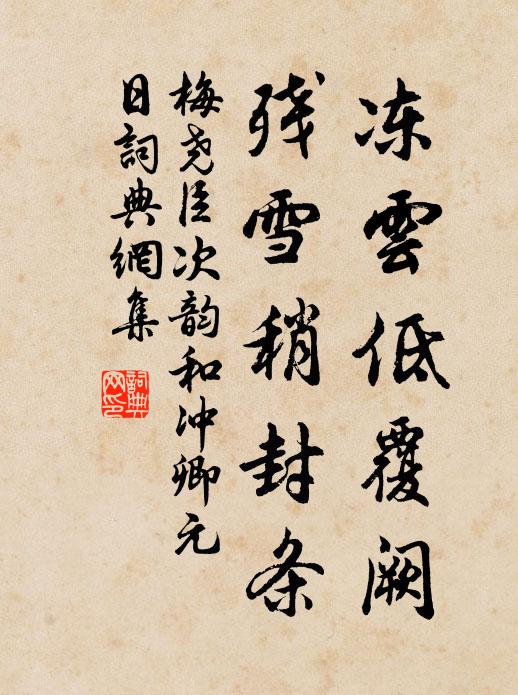 冻雲低覆阙
残雪稍封条
梅尧臣次韵和冲卿元
日詞典網集
詞典
网印